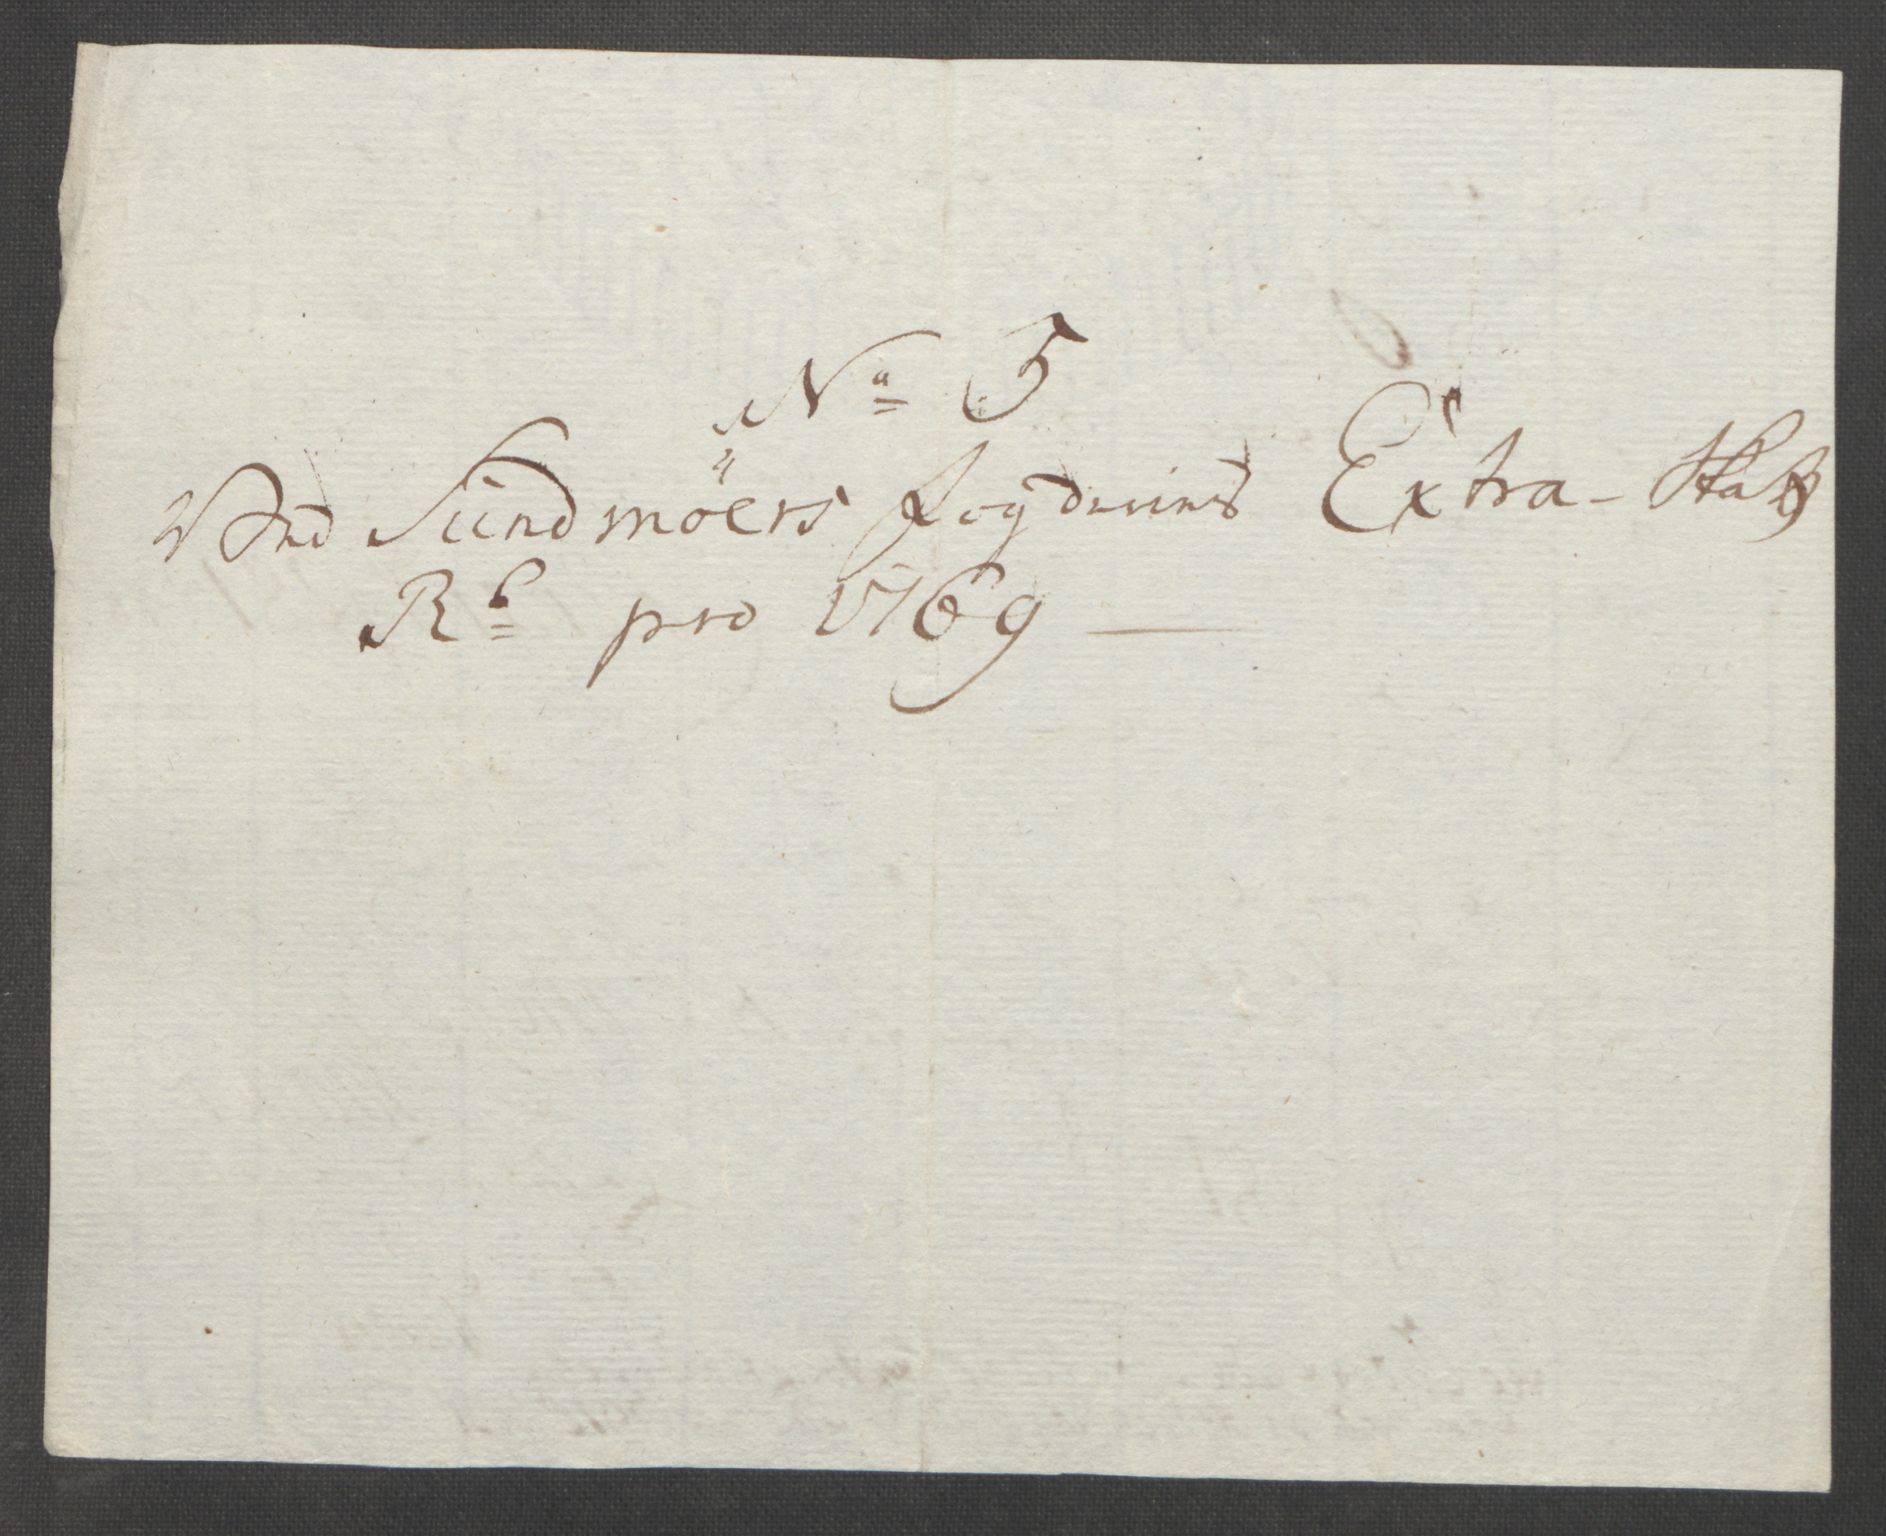 No 5
Ved Sundmöers fogderies Extra-Skatt
R: pro 1769